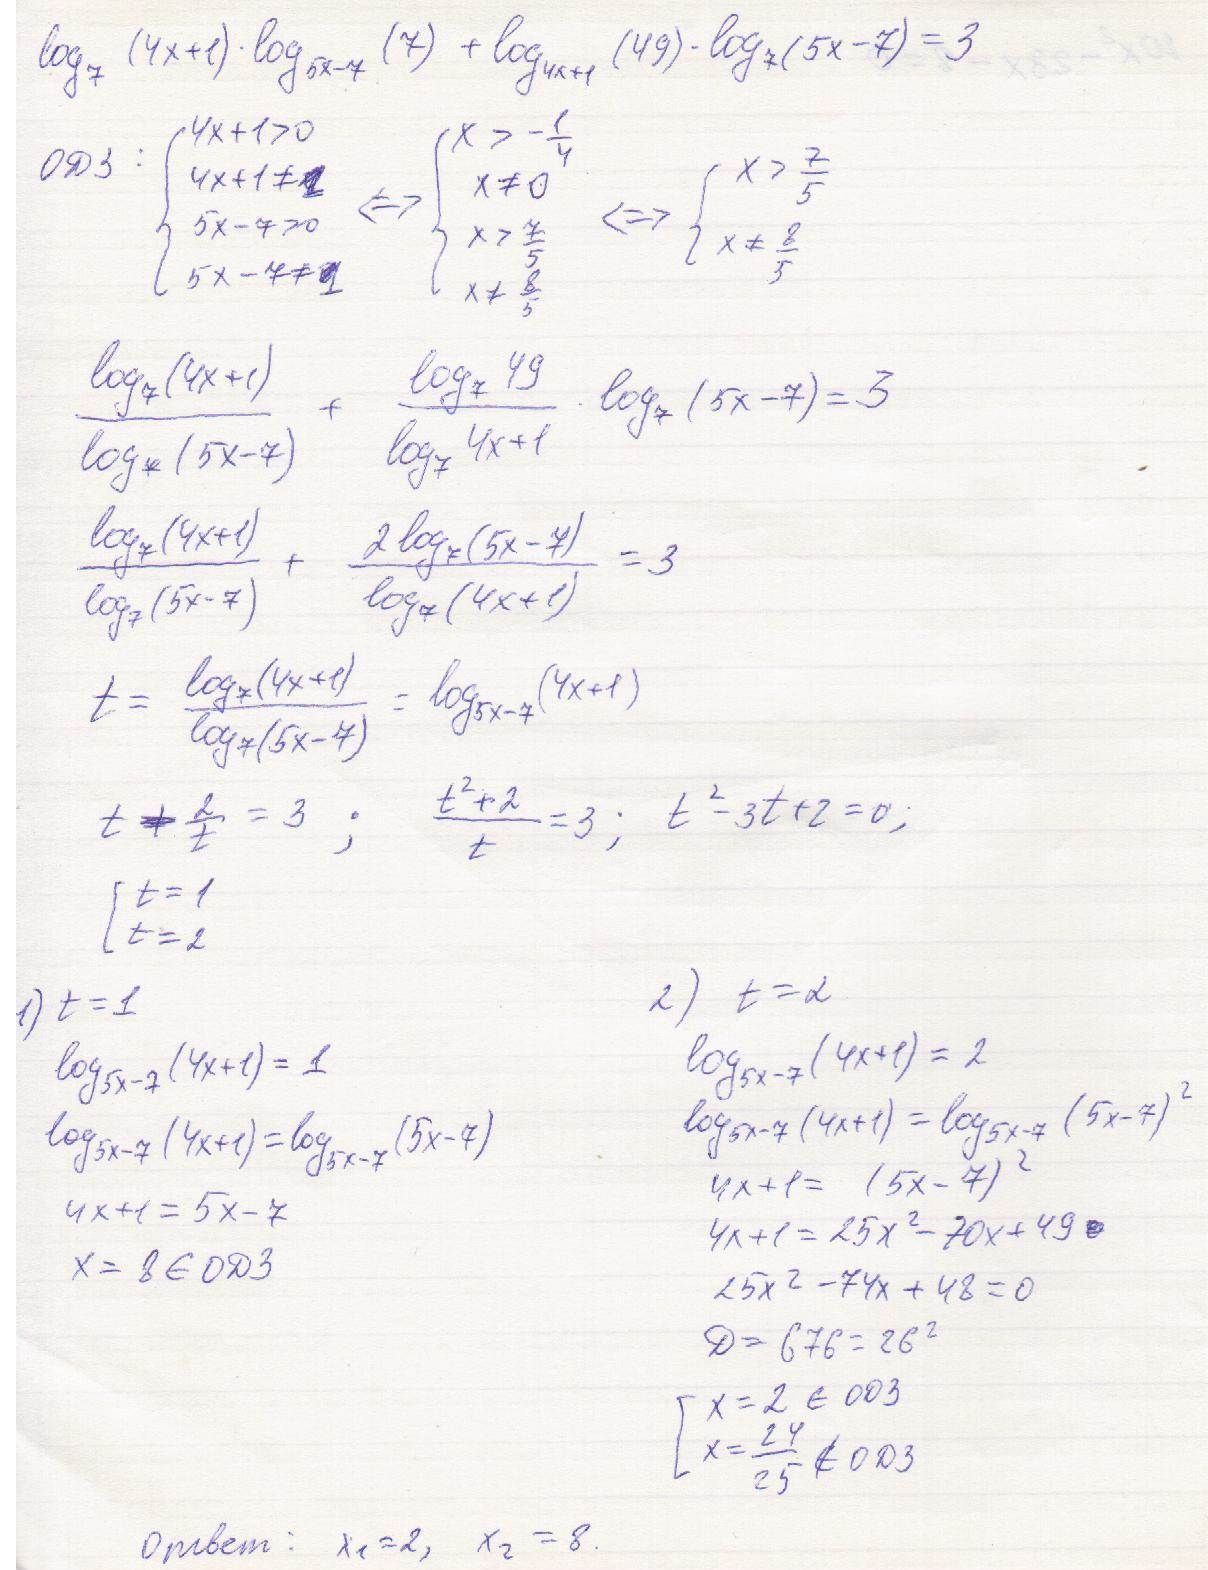 log₇ (4x+1) · log₅ₓ₋₇ (7) + log₄ₓ₊₁ (49) · log₇(5x−7) = 3
ОДЗ : { 4x+1>0 ; 4x+1≠1 ; 5x−7>0 ; 5x−7≠1 <=> { x > −1/4 ; x≠0 ; x > 7/5 ; x ≠ 8/5 <=> { x > 7/5 ; x ≠ 8/5
log₇(4x+1) / log₇(5x−7) + log₇ 49 / log₇ 4x+1 · log₇ (5x−7) = 3
log₇(4x+1) / log₇(5x−7) + 2log₇(5x−7) / log₇(4x+1) = 3
t = log₇(4x+1) / log₇(5x−7) = log₅ₓ₋₇(4x+1)
t + 2/t = 3 ; (t²+2)/t = 3 ; t²−3t+2=0;
[ t = 1
t = 2
1) t = 1
log₅ₓ₋₇(4x+1) = 1
log₅ₓ₋₇(4x+1) = log₅ₓ₋₇(5x−7)
4x+1 = 5x−7
x = 8 ∈ ОДЗ
2) t = 2
log₅ₓ₋₇(4x+1) = 2
log₅ₓ₋₇(4x+1) = log₅ₓ₋₇(5x−7)²
4x+1 = (5x−7)²
4x+1 = 25x²−70x+49
25x²−74x+48=0
Д = 676 = 26²
[ x = 2 ∈ ОДЗ
x = 24/25 ∉ ОДЗ
Ответ: x₁=2, x₂=8.